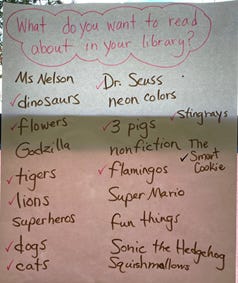 What do you want to read
about in your library?
Ms Nelson
✓dinosaurs
✓flowers
Godzilla
✓tigers
✓lions
superheros
✓dogs
✓cats
✓Dr. Seuss
neon colors
✓Stingrays
✓3 pigs
nonfiction
✓The Smart
Cookie
✓flamingos
Super Mario
fun things
Sonic the Hedgehog
Squishmallows